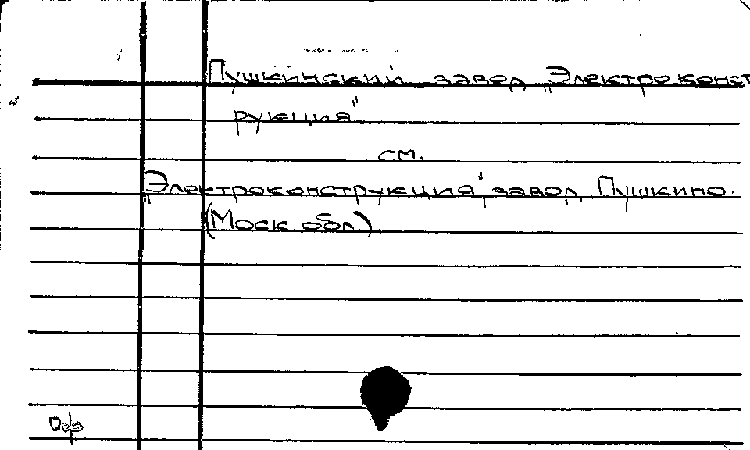 Пушкинский завод „Электроконст
рукция"
см.
„Электроконструкция", завод, Пушкино.
(Моск. обл.)